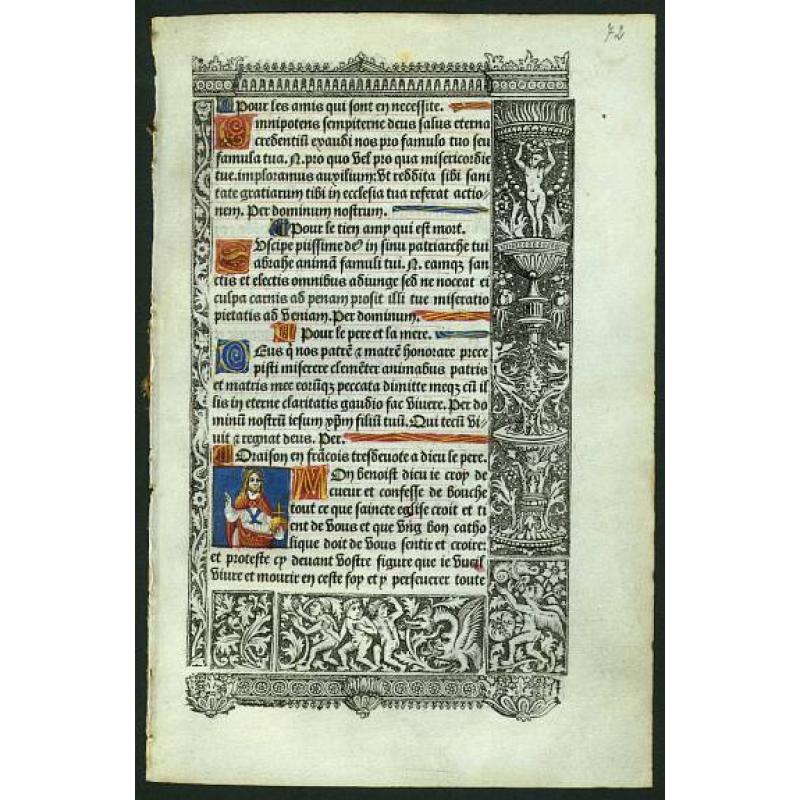 72
Pour les amis qui sont en necessite.
Omnipotens sempiterne deus salus eterna
credentiũ exaudi nos pro famulo tuo seu
famula tua. N. pro quo vel pro qua misericordie
tue.imploramus auxilium: vt reddita sibi sani
tate gratiarum tibi in ecclesia tua referat actio-
nem. Per dominum nostrum.
Pour le tien amy qui est mort.
Suscipe piissime de9 in sinu patriarche tui
abrahe animã famuli tui. N. eamqꝫ san
ctis et electis omnibus adiunge sed ne noceat ei
culpa carnis ad penam prosit illi tue miseratio
pietatis ad veniam. Per dominum.
Pour le pere et la mere.
Deus q̇ nos patrẽ ⁊ matrẽ honorare prece
pisti miserere clemẽter animabus patris
et matris mee eorũqꝫ peccata dimitte meqꝫ cũ il
lis in eterne claritatis gaudio fac vivere. Per do
minũ nostrũ iesum xp̃m filiũ tuũ. Qui tecũ vi-
uit ⁊ regnat deus. Per.
Oraison en frãcois tresdeuote a dieu le pere.
Mon benoist dieu ie croy de
cueur et confesse de bouche
tout ce que saincte eglise croit et ti
ent de vous et que vng bon catho
lique doit de vous sentir et croire:
et proteste cy deuant vostre figure que ie vueil
viure et mourir en ceste foy et y perseuerer toute